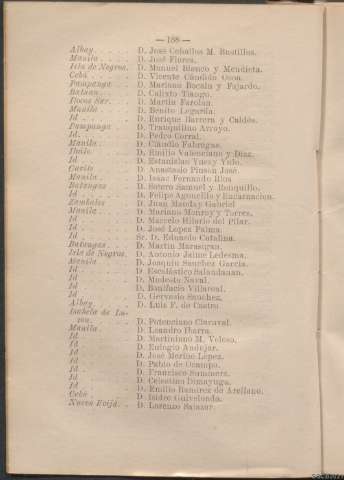 — 188 —
Albay. . . . . D. José Ceballos M. Bustillos.
Manila. . . . D. José Flores.
Isla de Negros. D. Manuel Blanco y Mendieta.
Cebú . . . . . D. Vicente Cándido Osoa.
Pampanga . . D. Mariano Bocala y Fajardo.
Bataan. . . . D. Calixto Tiango.
Ilocos Sur. . . D. Martin Farolan.
Manila . . . . D. Benito Legarda.
Id . . . . . . D. Enrique Barrera y Caldés.
Pampanga . . D. Tranquilino Arroyo.
Id. . . . . . D. Pedro Corral.
Manila. . . . D. Cláudio Fabregas.
Iloilo. . . . . D. Emilio Valenciano y Diaz.
Id . . . . . . D. Estanislao Yusay Yulo.
Cavite . . . . D. Anastasio Pinson José
Manila. . . . D. Isaac Fernando Rios
Batangas . . . D. Sotero Samuel y Ronquillo.
Id . . . . . . D. Felipe Agoncillo y Encarnacion.
Zambales . . . D. Juan Manday Gabriel
Manila. . . . D. Mariano Monroy y Torres.
Id . . . . . . D. Marcelo Hilario del Pilar.
Id . . . . . . D. José Lopez Palma.
Id . . . . . . Sr. D. Eduardo Catalina.
Batangas . . . D. Martin Marasigan.
Isla de Negros. D. Antonio Jaime Ledesma.
Manila . . . . D. Joaquin Sanchez Garcia.
Id . . . . . . D. Escolástico Salandanan.
Id . . . . . . D. Modesto Naval.
Id . . . . . . D. Bonifacio Villareal.
Id . . . . . . D. Gervasio Sanchez.
Albay . . . . D. Luis F. de Castro.
Isabela de Lu-
zon. . . . . D. Potenciano Claraval.
Manila. . . . D. Leandro Ibarra.
Id . . . . . . D. Martiniano M. Veloso.
Id . . . . . . D. Eulogio Andujar.
Id . . . . . . D. José Merino Lopez.
Id . . . . . . D. Pablo de Ocampo.
Id . . . . . . D. Francisco Summers.
Id . . . . . . D. Celestino Dimayuga.
Id . . . . . . D. Emilio Ramirez de Arellano.
Cebú . . . . . D. Isidro Guivelondo.
Nueva Ecija. . D. Lorenzo Salazar.